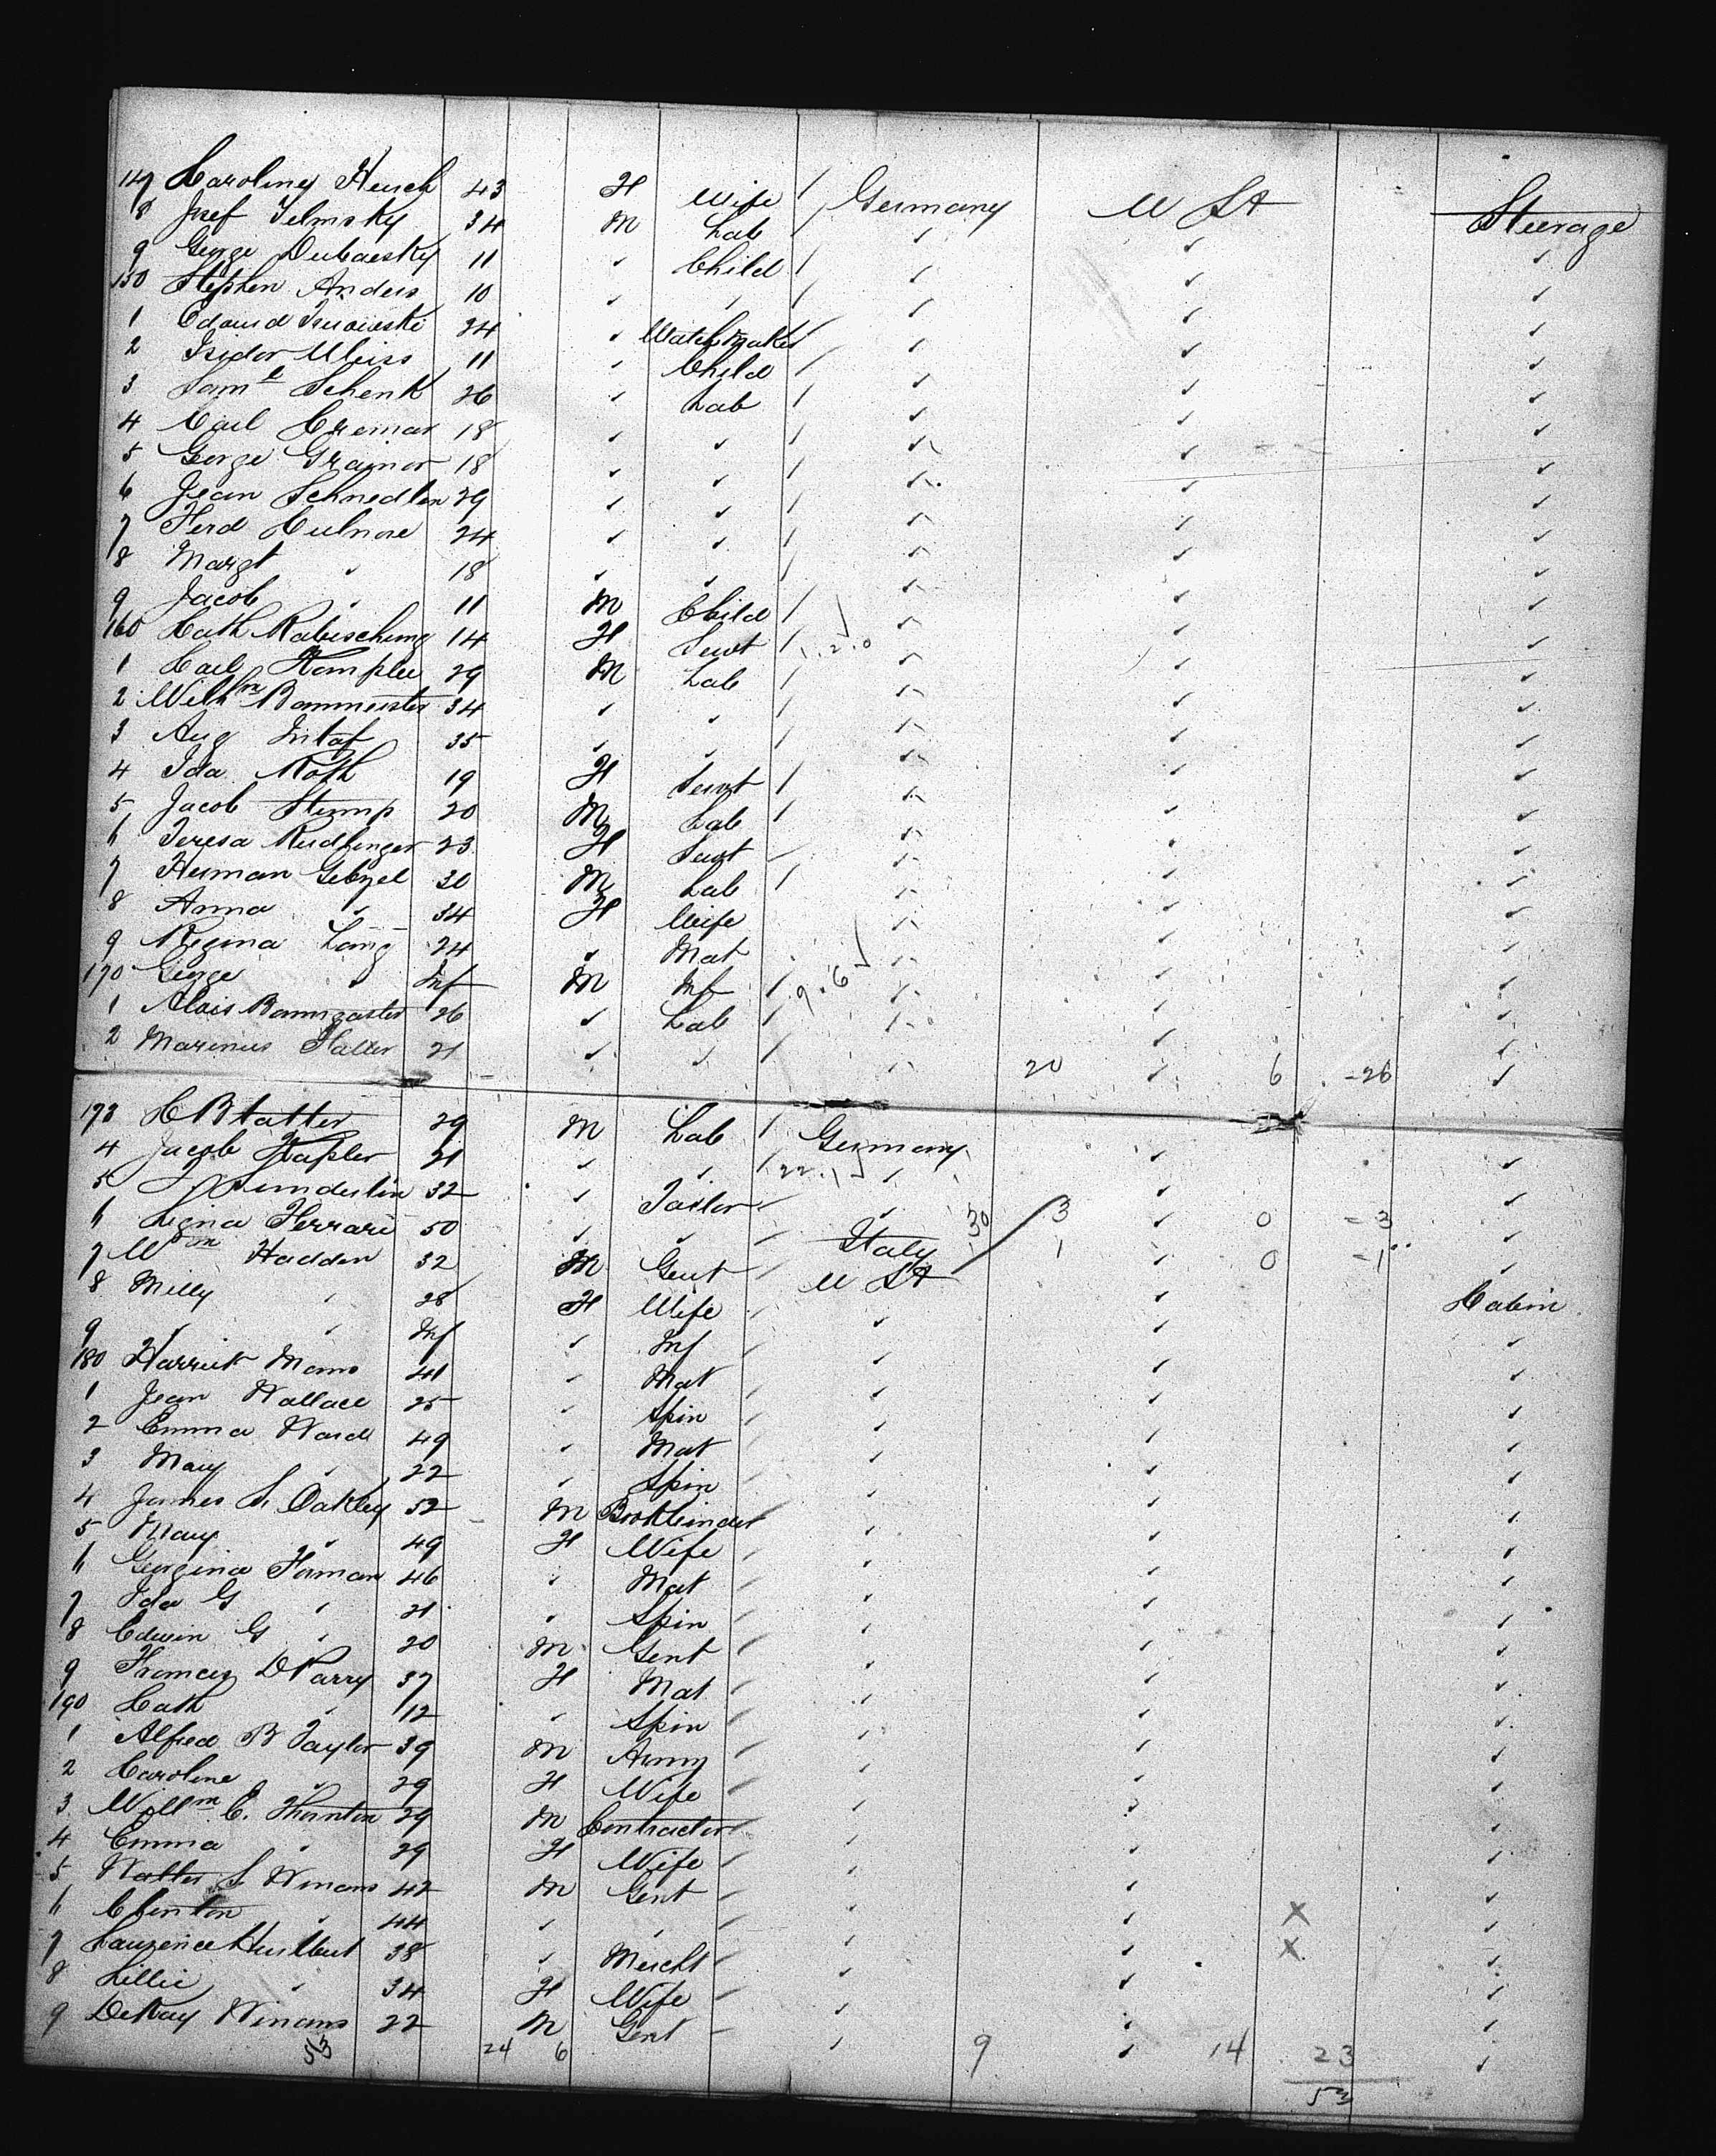 147 Caroline Hench 43 F Wife / Germany U St Steerage
8 Josef Telmsky 34 M Lab / ✓ ✓ ✓
9 George Dubaesky 11 ✓ Child / ✓ ✓ ✓
150 Stephen Anders 10 ✓ ✓ / ✓ ✓ ✓
1 Edourd 24 ✓ Watchmaker / ✓ ✓ ✓
2 Isidor Weiss 11 ✓ Child / ✓ ✓ ✓
3 Saml Schenk 26 ✓ Lab / ✓ ✓ ✓
4 Carl Cremar 18 ✓ ✓ / ✓ ✓ ✓
5 George Grainor 18 ✓ ✓ / ✓ ✓ ✓
6 Jean Schnedlen 29 ✓ ✓ / ✓ ✓ ✓
7 Ferd Culnore 24 ✓ ✓ / ✓ ✓ ✓
8 Margt ✓ 18 ✓ ✓ / ✓ ✓ ✓
9 Jacob ✓ 11 M Child / ✓ ✓ ✓
160 Cath Rabischung 14 F Servt / 2.0 ✓ ✓ ✓
1 Carl Kampler 29 M Lab / ✓ ✓ ✓
2 Wilhm Bammeister 34 ✓ ✓ / ✓ ✓ ✓
3 Aug Intaf 35 ✓ ✓ / ✓ ✓ ✓
4 Ida Roth 19 F Servt / ✓ ✓ ✓
5 Jacob Stump 20 M Lab / ✓ ✓ ✓
6 Teresa Rudfinger 23 F Servt / ✓ ✓ ✓
7 Herman Gebzel 30 M Lab / ✓ ✓ ✓
8 Anna ✓ 34 F Wife ✓ ✓ ✓
9 Regina Lang 24 ✓ Mat ✓ ✓ ✓
170 George ✓ Inf M Inf / 9.6 ✓ ✓ ✓
1 Alois Baumgaster 26 ✓ Lab / ✓ ✓ ✓
2 Marinus Haller 21 ✓ ✓ / ✓ 20 ✓ 6 -26 ✓
173 C Blatter 29 M Lab / Germany ✓ ✓
4 Jacob Kapler 21 ✓ ✓ / 22.1 ✓ ✓ ✓
5 J Sunderlin 32 ✓ Tailor / ✓ 30 3 ✓ 0 = 3 ✓
6 Ligna Ferrari 50 ✓ ✓ / Italy 1 ✓ 0 = 1 ✓
7 Wm Hadden 32 M Gent / U St ✓ Cabin
8 Milly ✓ 28 F Wife / ✓ ✓ ✓
9 ✓ ✓ Inf ✓ Inf / ✓ ✓ ✓
180 Harriet Mann 41 ✓ Mat / ✓ ✓ ✓
1 Jean Wallace 25 ✓ Spin / ✓ ✓ ✓
2 Emma Ward 49 ✓ Mat / ✓ ✓ ✓
3 May ✓ 22 ✓ Spin / ✓ ✓ ✓
4 James S. Oakley 52 M Bookbinder / ✓ ✓ ✓
5 Mary ✓ 49 F Wife / ✓ ✓ ✓
6 Georgina Forman 46 ✓ Mat / ✓ ✓ ✓
7 Ida G ✓ 21 ✓ Spin / ✓ ✓ ✓
8 Edwin G ✓ 20 M Gent / ✓ ✓ ✓
9 Frances D Parry 37 F Mat / ✓ ✓ ✓
190 Cath ✓ 12 ✓ Spin / ✓ ✓ ✓
1 Alfred B Taylor 39 M Army / ✓ ✓ ✓
2 Caroline ✓ 29 F Wife / ✓ ✓ ✓
3 Willm C. Thornton 29 M Contractor / ✓ ✓ ✓
4 Emma ✓ 29 F Wife / ✓ ✓ ✓
5 Walter S. Winans 42 M Gent / ✓ ✓ ✓
6 Clinton ✓ 44 ✓ ✓ / ✓ ✓ X ✓
7 Laurence Hurlbut 38 ✓ Mercht / ✓ ✓ X ✓
8 Lillie ✓ 34 F Wife / ✓ ✓ ✓
9 DeKay Winans 22 M Gent / ✓ ✓ ✓
53 24 6 9 14 23
53